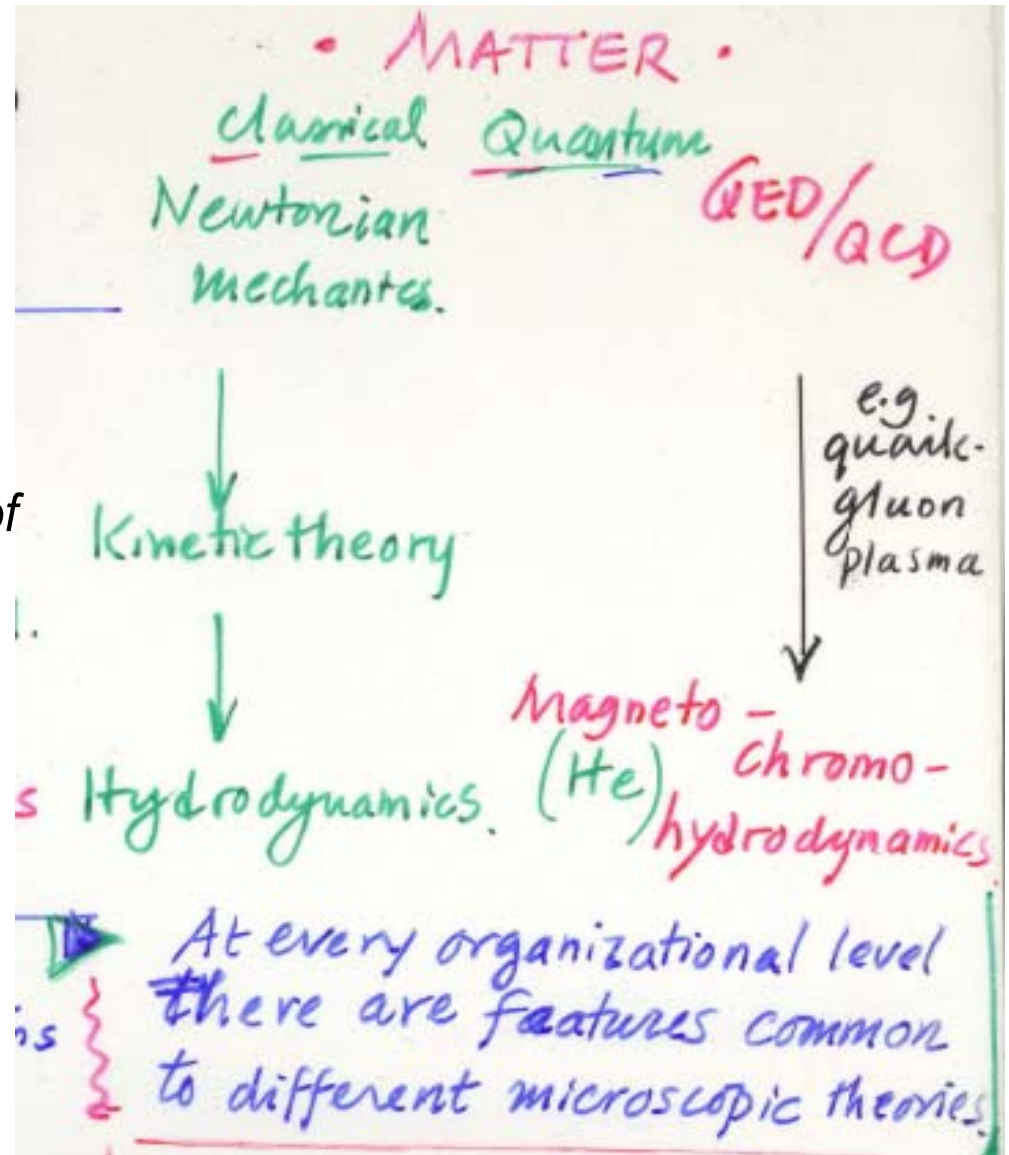 • MATTER •
Classical Quantum
Newtonian
mechanics.
QED/QCD
e.g.
quark-
gluon
plasma
of
Kinetic theory
.
Magneto-
chromo-
s Hydrodynamics. (He)
hydrodynamics.
At every organizational level
ns there are features common
to different microscopic theories.